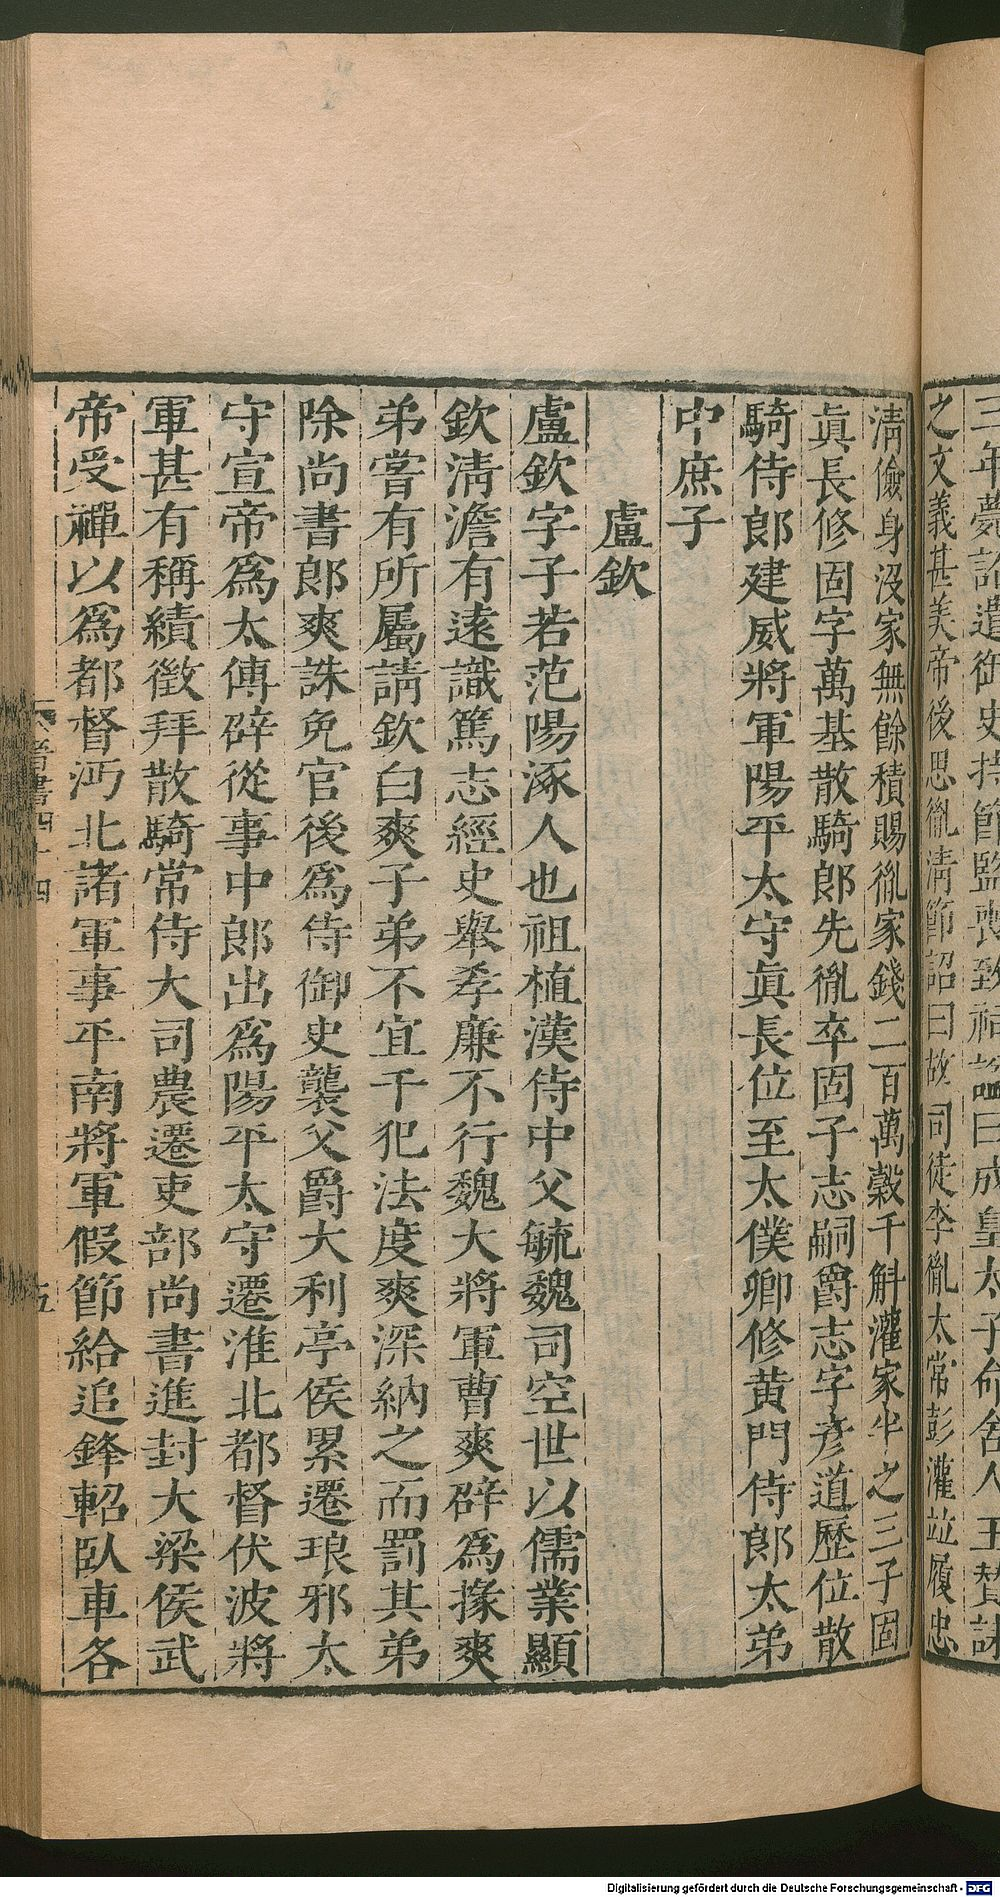 三年薨詔遣御史持節監喪致祠諡曰成皇太子命舍人王贊誄
之文義甚美帝後思胤淸節詔曰故司徒李胤太常彭灌竝履忠
淸儉身沒家無餘積賜胤家錢二百萬穀千斛灌家半之三子固
眞長修固字萬基散騎郎先胤卒固子志嗣爵志字彦道歷位散
騎侍郎建威將軍陽平太守眞長位至太僕卿修黄門侍郎太弟
中庶子
盧欽
盧欽字子若范陽涿人也祖植漢侍中父毓魏司空世以儒業顯
欽淸澹有遠識篤志經史舉孝廉不行魏大將軍曹爽辟爲掾爽
弟嘗有所屬請欽白爽子弟不宜干犯法度爽深納之而罰其弟
除尚書郎爽誅免官後爲侍御史襲父爵大利亭侯累遷琅邪太
守宣帝爲太傅辟從事中郎出爲陽平太守遷淮北都督伏波將
軍甚有稱績徵拜散騎常侍大司農遷吏部尚書進封大梁侯武
帝受禪以爲都督沔北諸軍事平南將軍假節給追鋒軺臥車各
晉書四十四 五
Digitalisierung gefördert durch die Deutsche Forschungsgemeinschaft - DFG